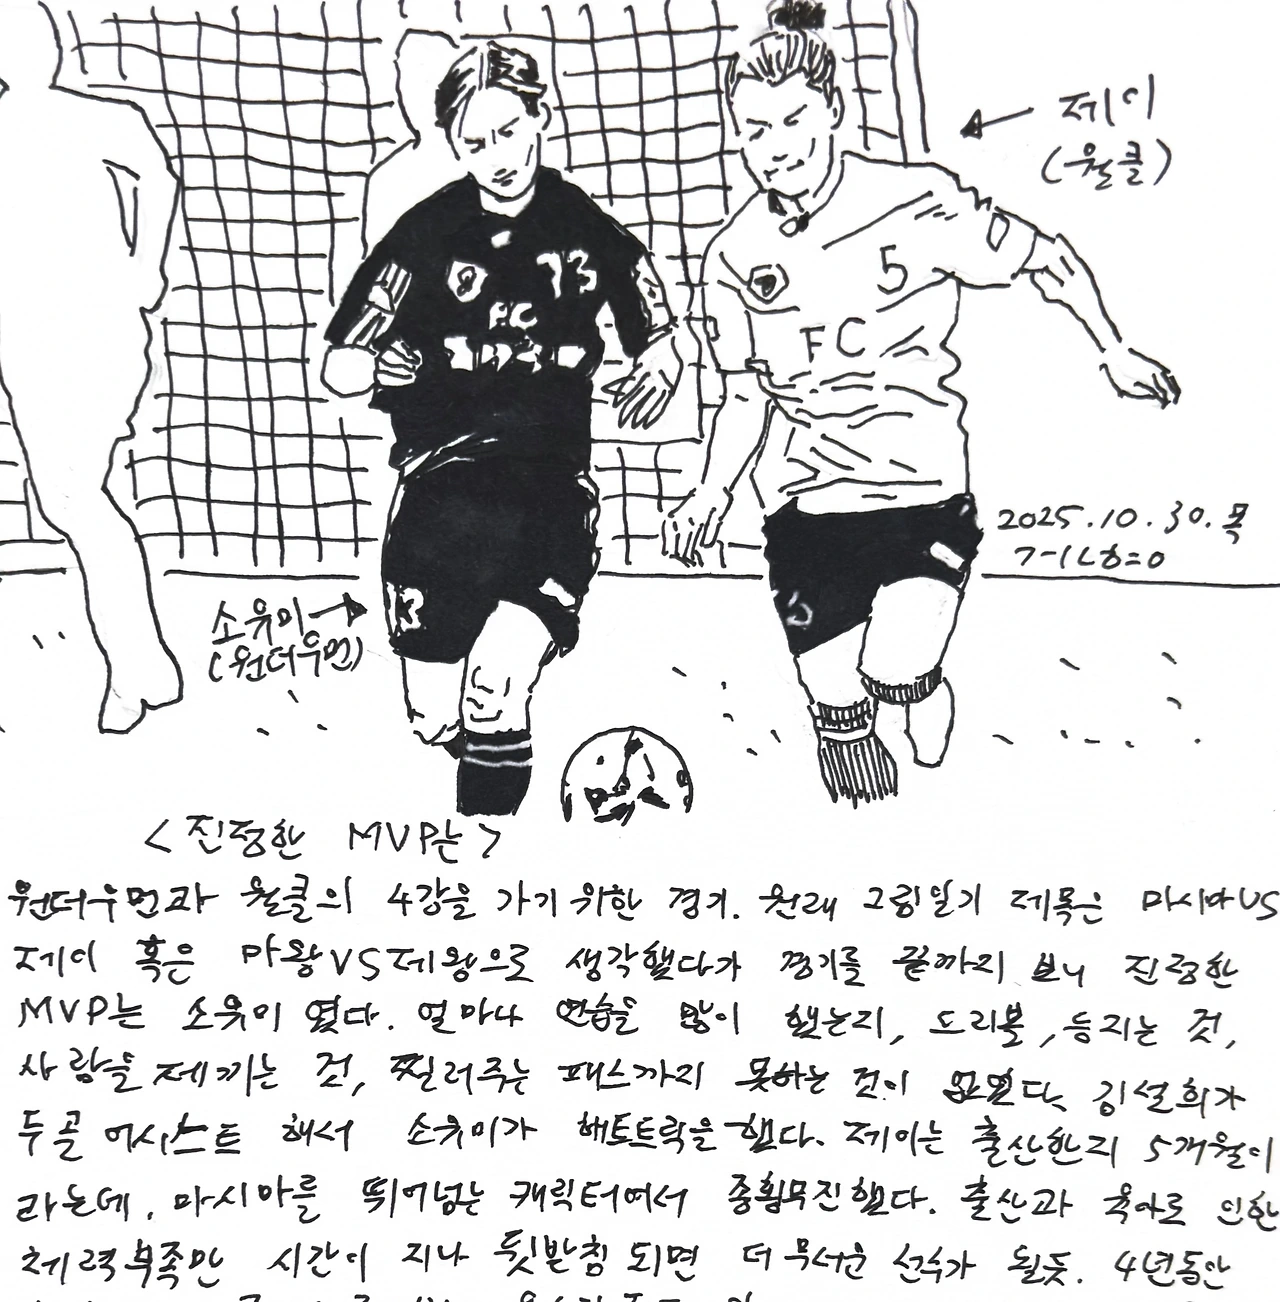 제이
(월클)
13
FC
5
FC
2025.10.30.목
소유미
(원더우먼)
13
5
<진정한 MVP는>
원더우먼과 월클의 4강을 가기 위한 경기. 원래 그림일기 제목은 마시마VS
제이 혹은 마왕VS제왕으로 생각했다가 경기를 끝까지 보니 진정한
MVP는 소유미 였다. 얼마나 연습을 많이 했는지, 드리블, 등지는 것,
사람을 제끼는 것, 찔러주는 패스까지 못하는 것이 없었다. 김설희가
두골 어시스트 해서 소유미가 해트트릭을 했다. 제이는 출산한지 5개월이
라는데, 마시마를 뛰어넘는 캐릭터여서 종횡무진했다. 출산과 육아로 인한
체력부족만 시간이 지나 뒷받침 되면 더 무서운 선수가 될듯. 4년동안